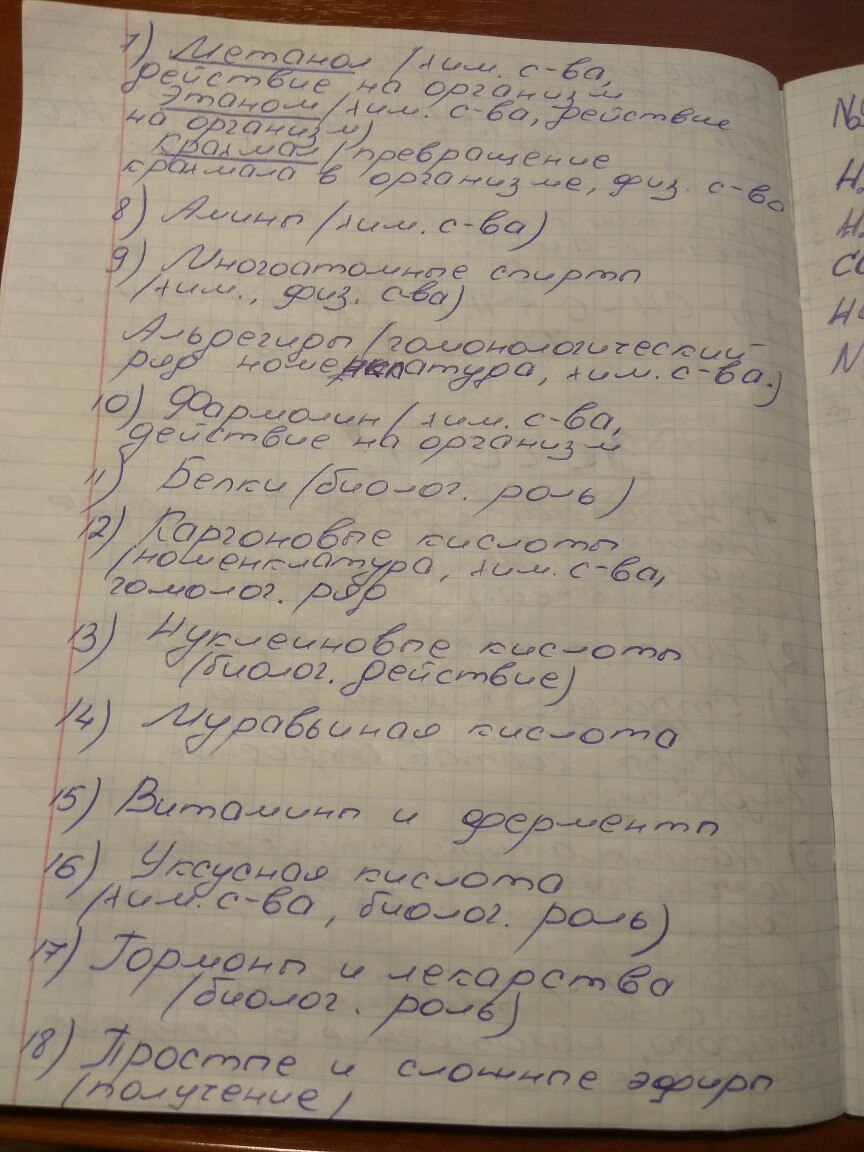 7) Метанол (хим. с-ва,
действие на организм
этанол (хим. с-ва, действие
на организм)
крахмал (превращение
крахмала в организме, физ. с-ва
8) Амины (хим. с-ва)
9) Многоатомные спирты
(хим., физ. с-ва)
Альдегиды (гомонологический
ряд номенклатура, хим. с-ва.)
10) Фармолин (хим. с-ва,
действие на организм
11) Белки (биолог. роль)
12) Каргоновые кислоты
(номенклатура, хим. с-ва,
гомолог. ряд
13) Нуклеиновые кислоты
(биолог. действие)
14) Муравьиная кислота
15) Витамины и ферменты
16) Уксусная кислота
(хим. с-ва, биолог. роль)
17) Гормоны и лекарства
(биолог. роль)
18) Простые и сложные эфиры
(получение)
№
H
H